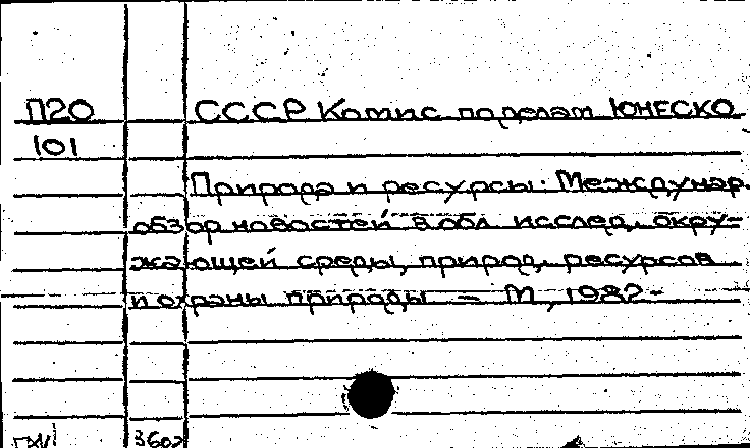 П20 СССР Комис по делам ЮНЕСКО
101
Природа и ресурсы: Междунар.
обзор новостей в обл исслед. окру-
жающей среды, природ. ресурсов
и охраны природы — М, 1982-